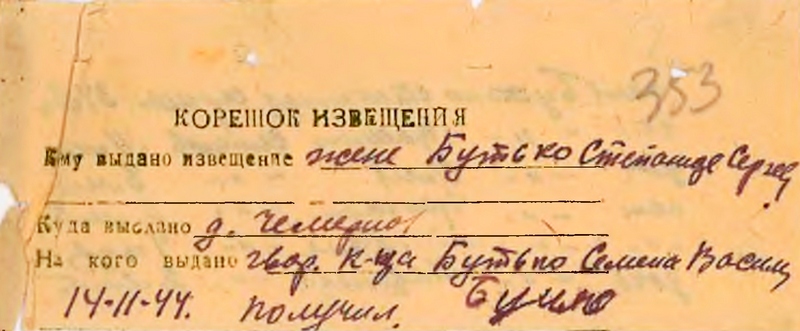 353
КОРЕШОК ИЗВЕЩЕНИЯ
Кму выдано извещение жене Бутько Степаниде Сергев
Куда выслано д. Чемерно
На кого выдано гвар. к-ца Бутько Семена Васил
14-11-44. получил. Бутько